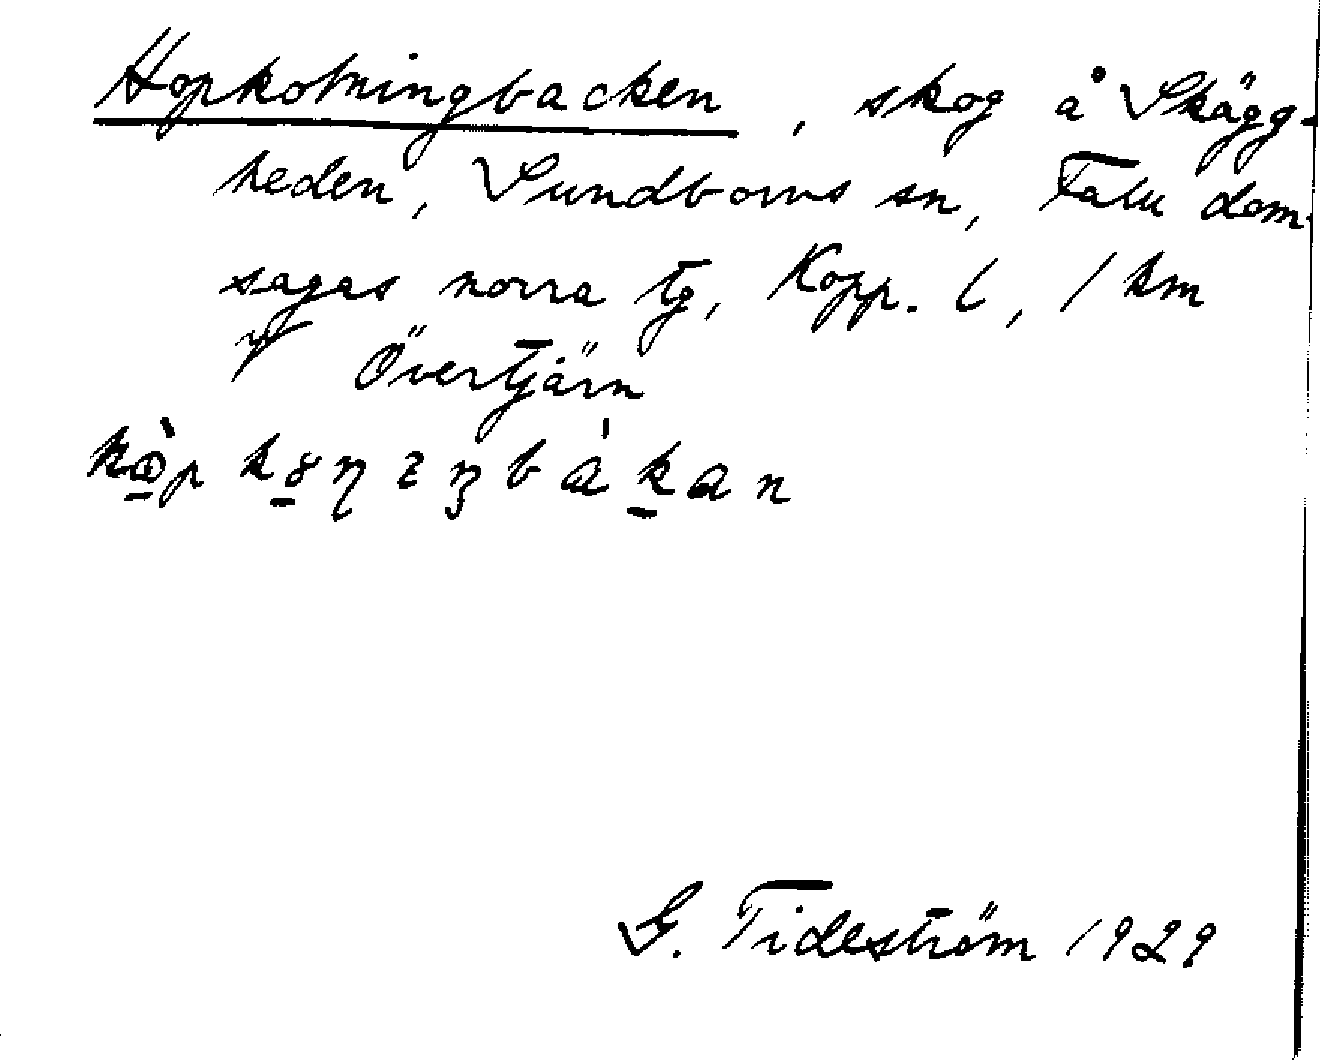 Hopkotningbacken, skog å Skägg-
heden, Sundborns sn, Falu dom-
sagas norra tg, Kopp. l, 1 km
Övertjärn
G. Tideström 1929